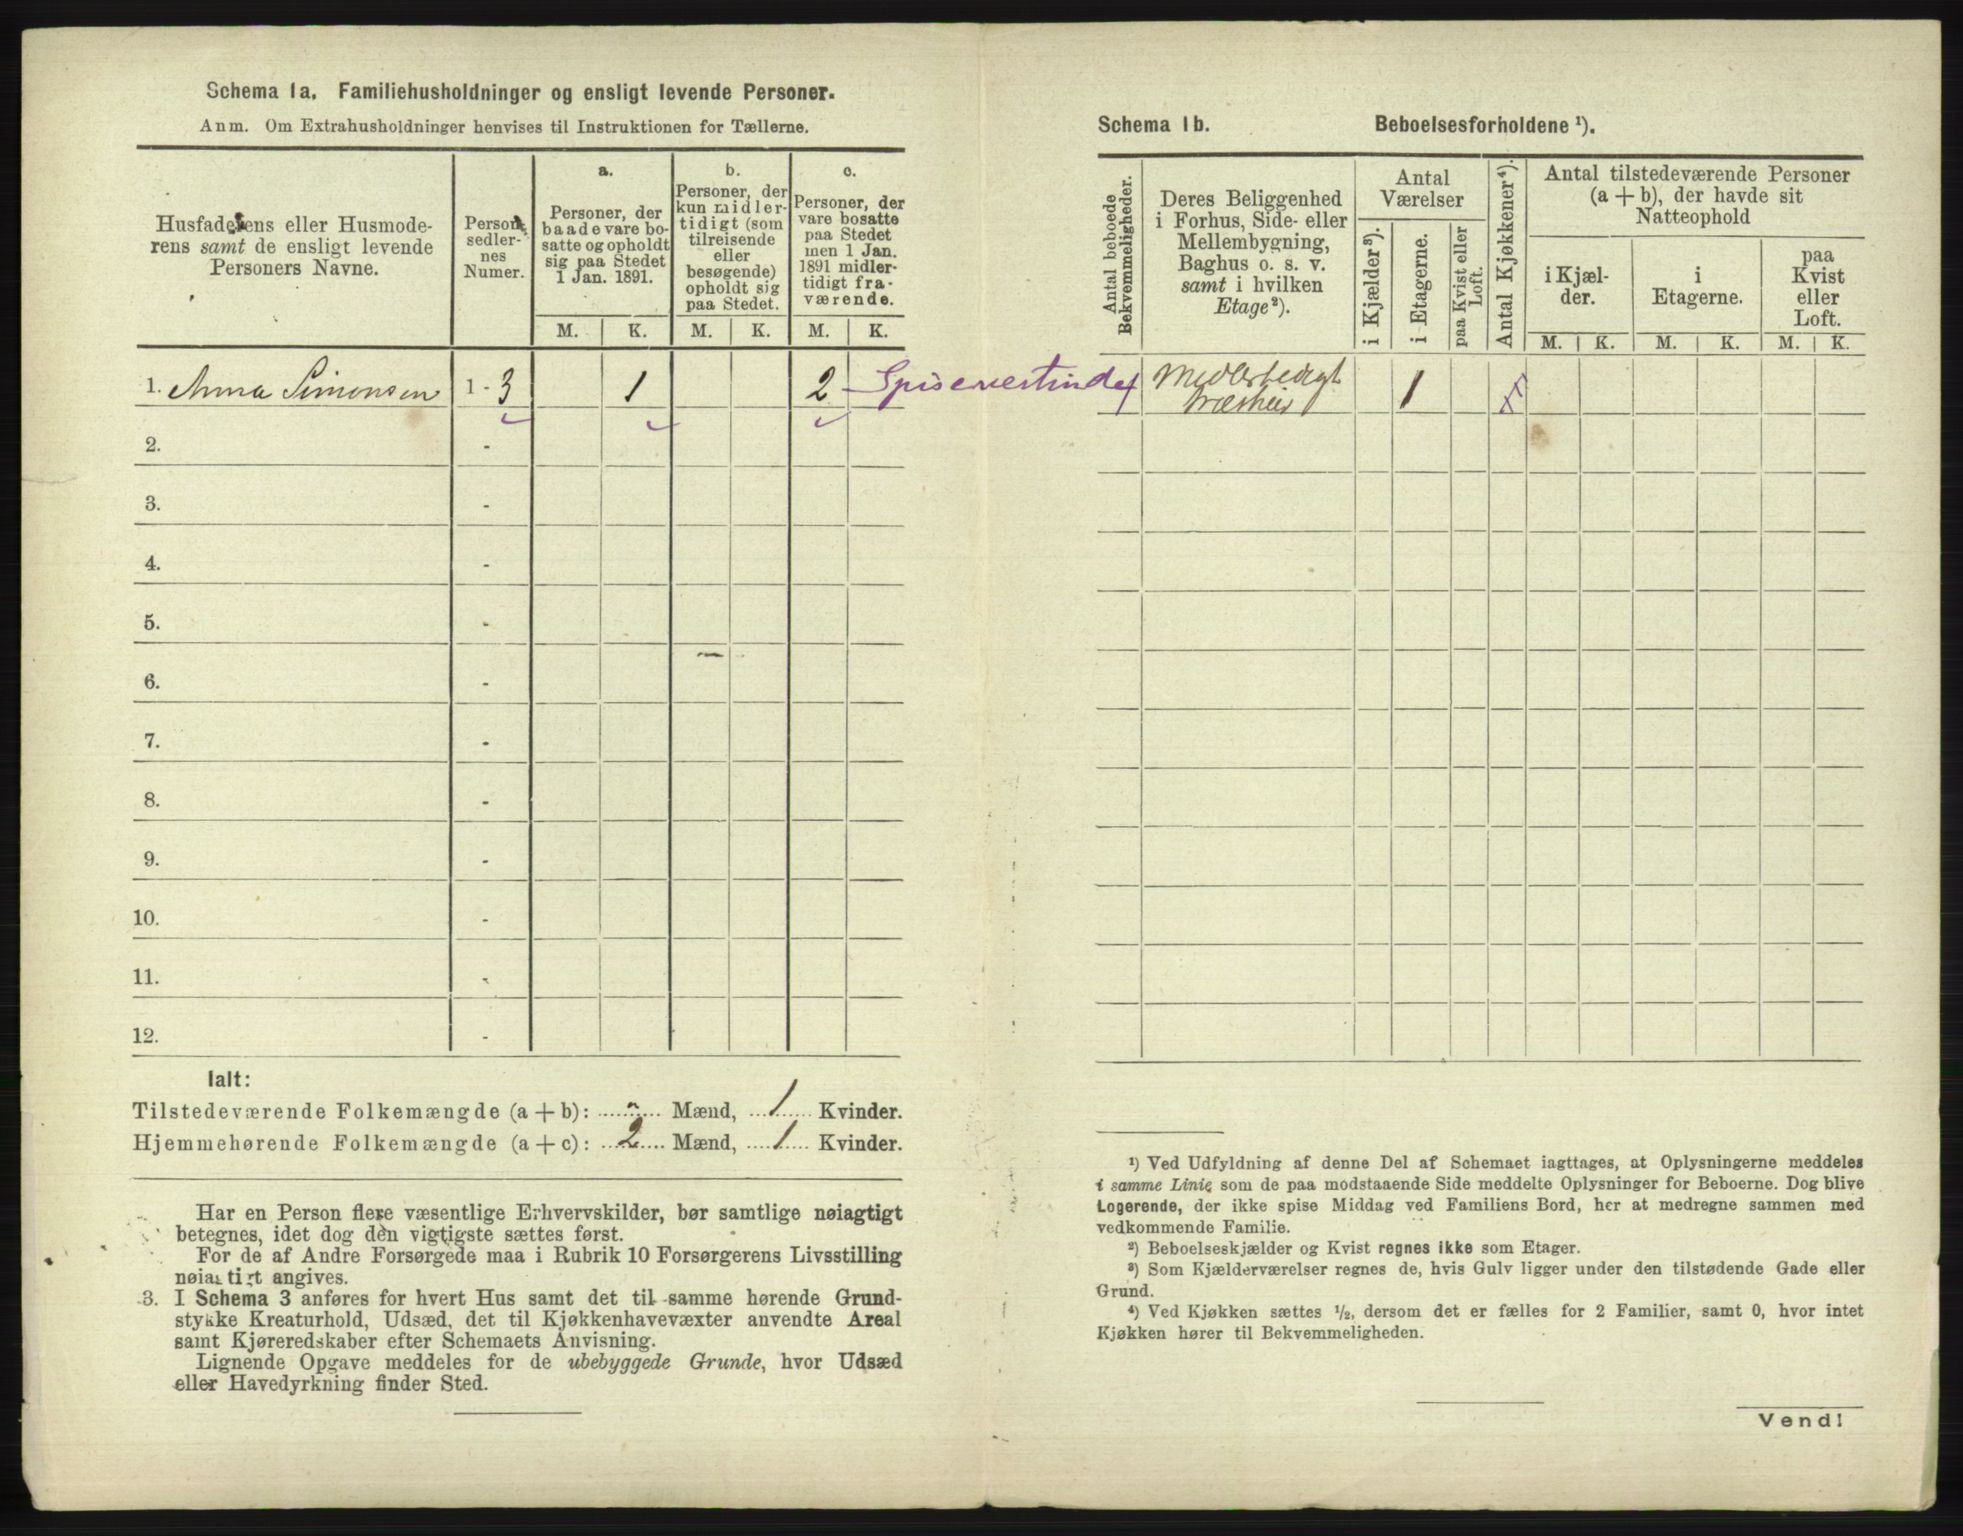 Schema 1a. Familiehusholdninger og ensligt levende Personer.
Anm. Om Extrahusholdninger henvises til Instruktionen for Tællerne.
Husfaderens eller Husmode-
rens samt de ensligt levende
Personers Navne.
Person-
sedler-
nes
Numer.
a.
Personer, der
baade vare bo-
satte og opholdt
sig paa Stedet
1 Jan. 1891.
b.
Personer, der
kun midler-
tidigt (som
tilreisende
eller
besøgende)
opholdt sig
paa Stedet.
c.
Personer, der
vare bosatte
paa Stedet
men 1 Jan.
1891 midler-
tidigt fra-
værende.
M. K. M. K. M. K.
1. Anna Simonsen 1 - 3 1 2
2. -
3. -
4. -
5. -
6. -
7. -
8. -
9. -
10. -
11. -
12. -
Ialt:
Tilstedeværende Folkemængde (a + b): ........ Mænd, ...1... Kvinder.
Hjemmehørende Folkemængde (a + c): ...2... Mænd, ...1... Kvinder.
Har en Person flere væsentlige Erhvervskilder, bør samtlige nøiagtigt
betegnes, idet dog den vigtigste sættes først.
For de af Andre Forsørgede maa i Rubrik 10 Forsørgerens Livsstilling
nøiagtigt angives.
3. I Schema 3 anføres for hvert Hus samt det til samme hørende Grund-
stykke Kreaturhold, Udsæd, det til Kjøkkenhavevæxter anvendte Areal
samt Kjøreredskaber efter Schemaets Anvisning.
Lignende Opgave meddeles for de ubebyggede Grunde, hvor Udsæd
eller Havedyrkning finder Sted.
Schema 1b. Beboelsesforholdene ¹).
Antal beboede
Bekvemmeligheder.
Deres Beliggenhed
i Forhus, Side- eller
Mellembygning,
Baghus o. s. v.
samt i hvilken
Etage²).
Antal
Værelser
i Kjælder³).
i Etagerne.
paa Kvist eller
Loft.
Antal Kjøkkener⁴).
Antal tilstedeværende Personer
(a + b), der havde sit
Natteophold
i Kjæl-
der.
i
Etagerne.
paa
Kvist
eller
Loft.
M. K. M. K. M. K.
1
¹) Ved Udfyldning af denne Del af Schemaet iagttages, at Oplysningerne meddeles
i samme Linie som de paa modstaaende Side meddelte Oplysninger for Beboerne. Dog blive
Logerende, der ikke spise Middag ved Familiens Bord, her at medregne sammen med
vedkommende Familie.
²) Beboelseskjælder og Kvist regnes ikke som Etager.
³) Som Kjælderværelser regnes de, hvis Gulv ligger under den tilstødende Gade eller
Grund.
⁴) Ved Kjøkken sættes ½, dersom det er fælles for 2 Familier, samt 0, hvor intet
Kjøkken hører til Bekvemmeligheden.
Vend!